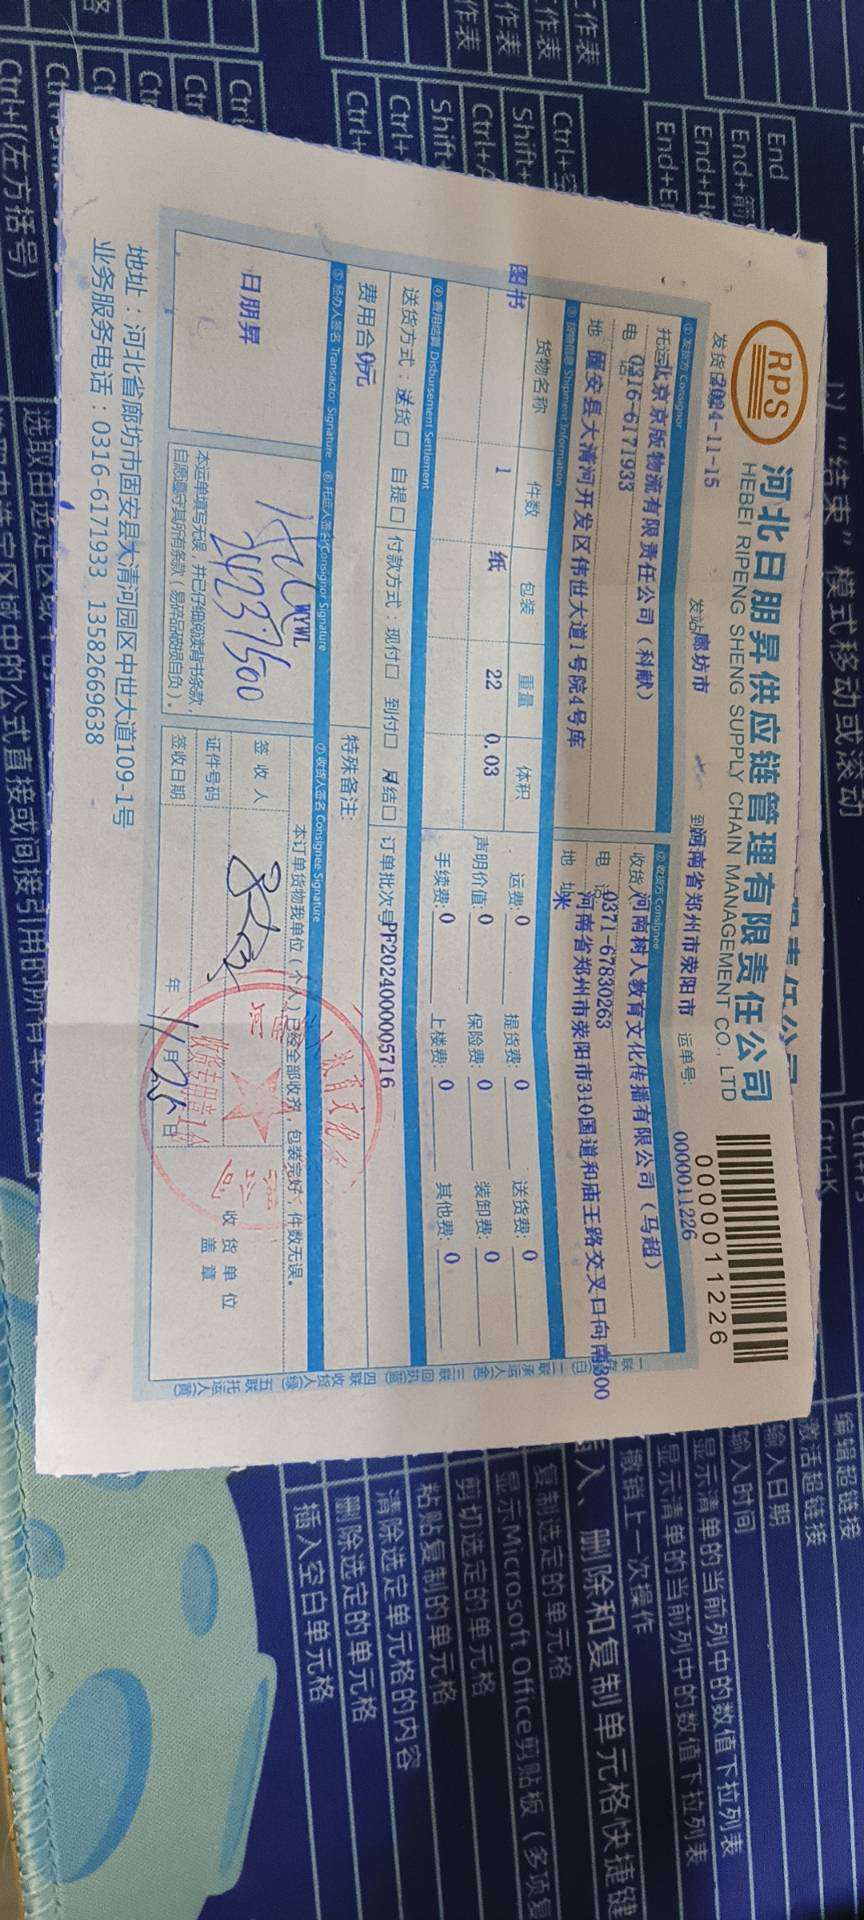 RPS
河北日朋昇供应链管理有限责任公司
HEBEI RIPENG SHENG SUPPLY CHAIN MANAGEMENT CO., LTD
0000011226
发货日期 2024-11-15
发站 廊坊市
到 河南省郑州市荥阳市
运单号: 0000011226
① 发货方 Consignor
托运 北京京版物流有限责任公司（科献）
电话 0316-6171933
地 固安县大清河开发区伟世大道1号院4号库
② 收货方 Consignee
收货人 河南树人教育文化传播有限公司（马超）
电话 0371-67830263
地址 河南省郑州市荥阳市310国道和庙王路交叉口向南300
米
③ 货物信息 Shipment Information
货物名称 件数 包装 重量 体积
图书 1 纸 22 0.03
运费: 0 提货费: 0 送货费: 0
声明价值: 0 保险费: 0 装卸费: 0
手续费: 0 上楼费: 0 其他费: 0
④ 费用结算 Disbursement Settlement
送货方式：送货□ 自提□ 付款方式：现付□ 到付□ 月结□ 订单批次号 PF2024000005716
费用合 0元
特殊备注:
⑤ 经办人签名 Transactor Signature
⑥ 托运人签名 Consignor Signature
⑦ 收货人签名 Consignee Signature
日朋昇
WYWL
本运单填写无误，并已仔细阅读背书条款，
自愿遵守其所有条款（易碎品破损自负）。
本订单货物我单位（个人）已经全部收齐，包装完好，件数无误。
签收人
证件号码
签收日期 年 11月25日
收货单位
盖章
地址：河北省廊坊市固安县大清河园区中世大道109-1号
业务服务电话：0316-6171933 13582669638
以"结束"模式移动或滚动
End
Ctrl+K
编辑超链接
激活超链接
输入日期
输入时间
显示清单的当前列中的数值下拉列表
显示清单的当前列中的数值下拉列表
撤销上一次操作
删除和复制单元格快捷键
复制选定的单元格
显示Microsoft Office剪贴板（多项复
剪切选定的单元格
粘贴复制的单元格
清除选定单元格的内容
删除选定的单元格
插入空白单元格
Ctrl+[(左方括号)